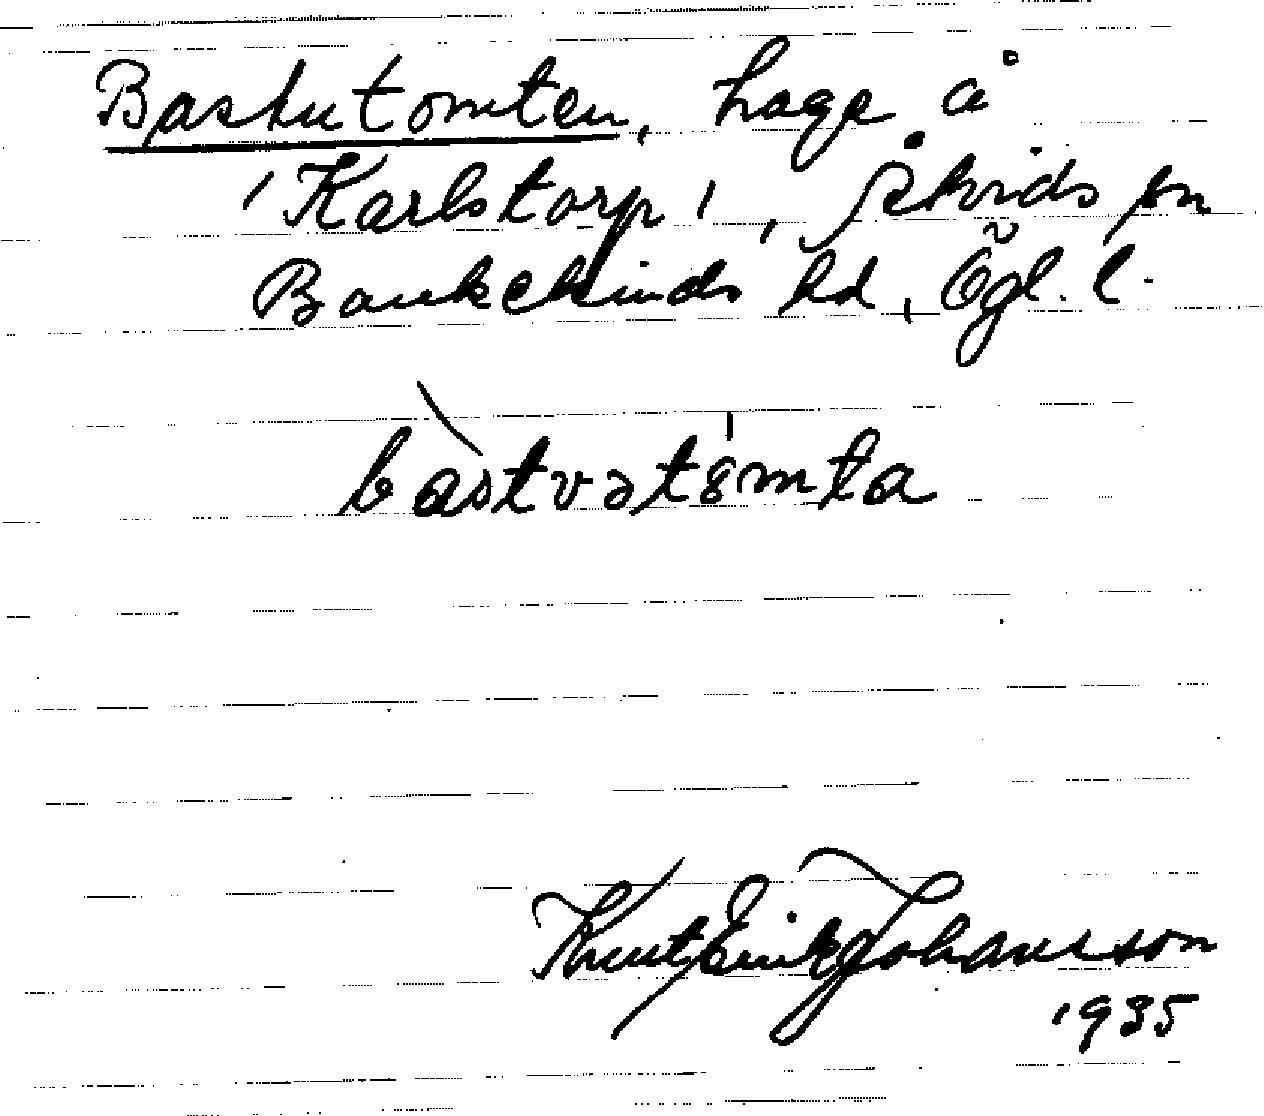 Bastutomten, hage å
'Karlstorp', Åtvids sn
Bankekinds hd, Ögl. l.
bàstvəts̍mta
Knut Erik Johansson
1935